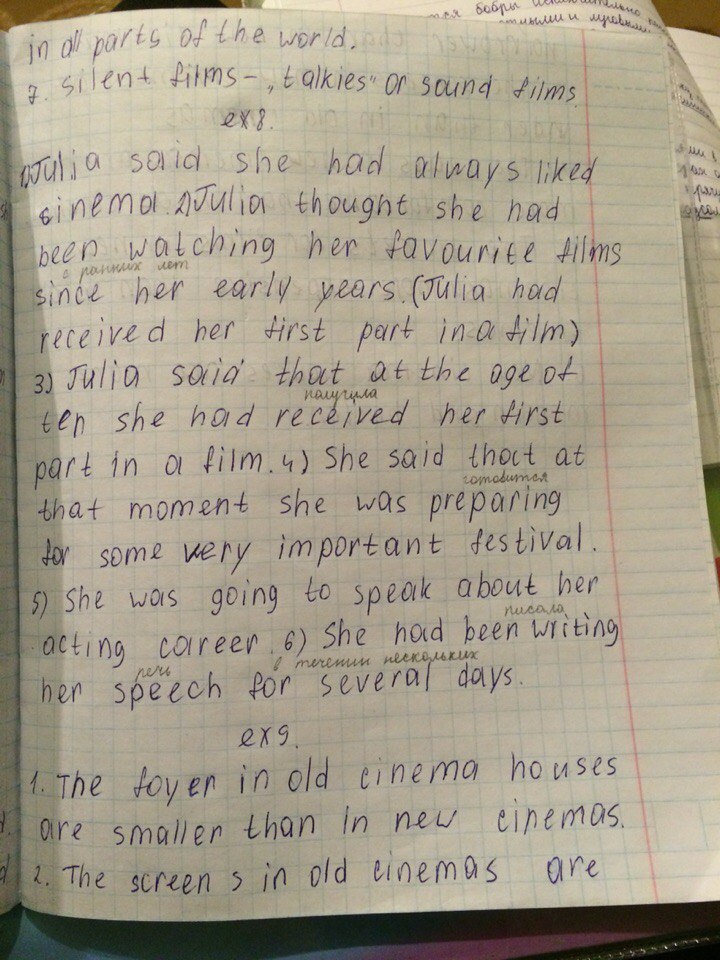 in all parts of the world.
7. silent films - „talkies" or sound films.
ex 8.
1) Julia said she had always liked
sinema. 2) Julia thought she had
been watching her favourite films
с ранних лет
since her early years. (Julia had
received her first part in a film)
3) Julia said that at the age of
получила
ten she had received her first
part in a film. 4) She said that at
готовится
that moment she was preparing
for some very important festival.
5) She was going to speak about her
писала
acting career. 6) She had been writing
речь в течении нескольких
her speech for several days.
ex 9.
1. The foyer in old cinema houses
are smaller than in new cinemas.
2. The screen s in old cinemas are
бобры